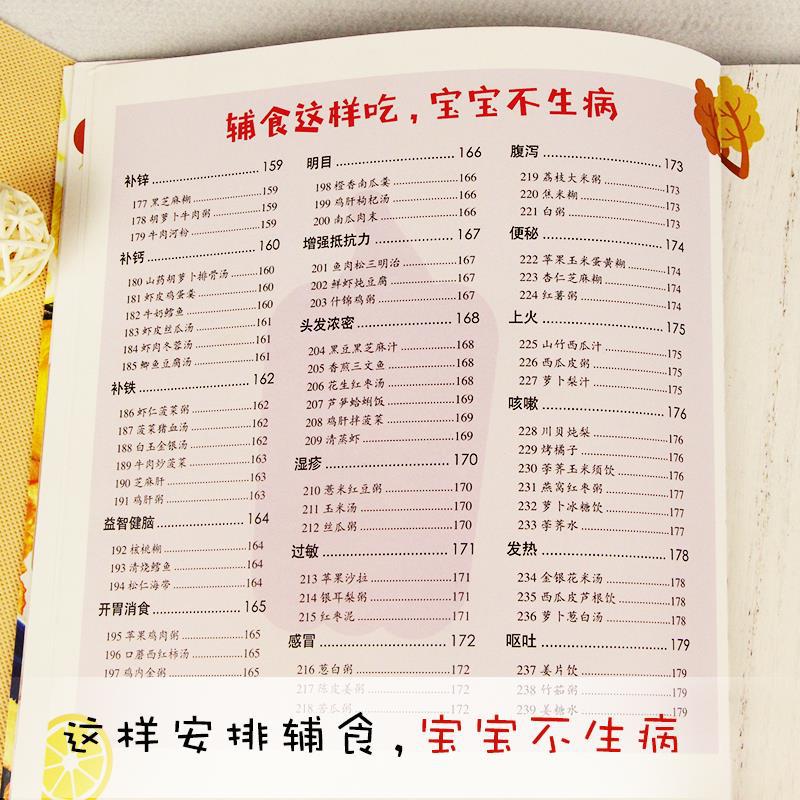 辅食这样吃，宝宝不生病
补锌 159
177 黑芝麻糊 159
178 胡萝卜牛肉粥 159
179 牛肉河粉 159
补钙 160
180 山药胡萝卜排骨汤 160
181 虾皮鸡蛋羹 160
182 牛奶鳕鱼 160
183 虾皮丝瓜汤 161
184 虾肉冬蓉汤 161
185 鲫鱼豆腐汤 161
补铁 162
186 虾仁菠菜粥 162
187 菠菜猪血汤 162
188 白玉金银汤 162
189 牛肉炒菠菜 163
190 芝麻肝 163
191 鸡肝粥 163
益智健脑 164
192 核桃糊 164
193 清烧鳕鱼 164
194 松仁海带 164
开胃消食 165
195 苹果鸡肉粥 165
196 口蘑西红柿汤 165
197 鸡内金粥 165
明目 166
198 橙香南瓜羹 166
199 鸡肝枸杞汤 166
200 南瓜肉末 166
增强抵抗力 167
201 鱼肉松三明治 167
202 鲜虾炖豆腐 167
203 什锦鸡粥 167
头发浓密 168
204 黑豆黑芝麻汁 168
205 香煎三文鱼 168
206 花生红枣汤 168
207 芦笋蛤蜊饭 169
208 鸡肝拌菠菜 169
209 清蒸虾 169
湿疹 170
210 薏米红豆粥 170
211 玉米汤 170
212 丝瓜粥 170
过敏 171
213 苹果沙拉 171
214 银耳梨粥 171
215 红枣泥 171
感冒 172
216 葱白粥 172
217 陈皮姜粥 172
218 苦瓜粥 172
腹泻 173
219 荔枝大米粥 173
220 焦米糊 173
221 白粥 173
便秘 174
222 苹果玉米蛋黄糊 174
223 杏仁芝麻糊 174
224 红薯粥 174
上火 175
225 山竹西瓜汁 175
226 西瓜皮粥 175
227 萝卜梨汁 175
咳嗽 176
228 川贝炖梨 176
229 烤橘子 176
230 荸荠玉米须饮 176
231 燕窝红枣粥 177
232 萝卜冰糖饮 177
233 荸荠水 177
发热 178
234 金银花米汤 178
235 西瓜皮芦根饮 178
236 萝卜葱白汤 178
呕吐 179
237 姜片饮 179
238 竹茹粥 179
239 姜糖水 179
这样安排辅食，宝宝不生病